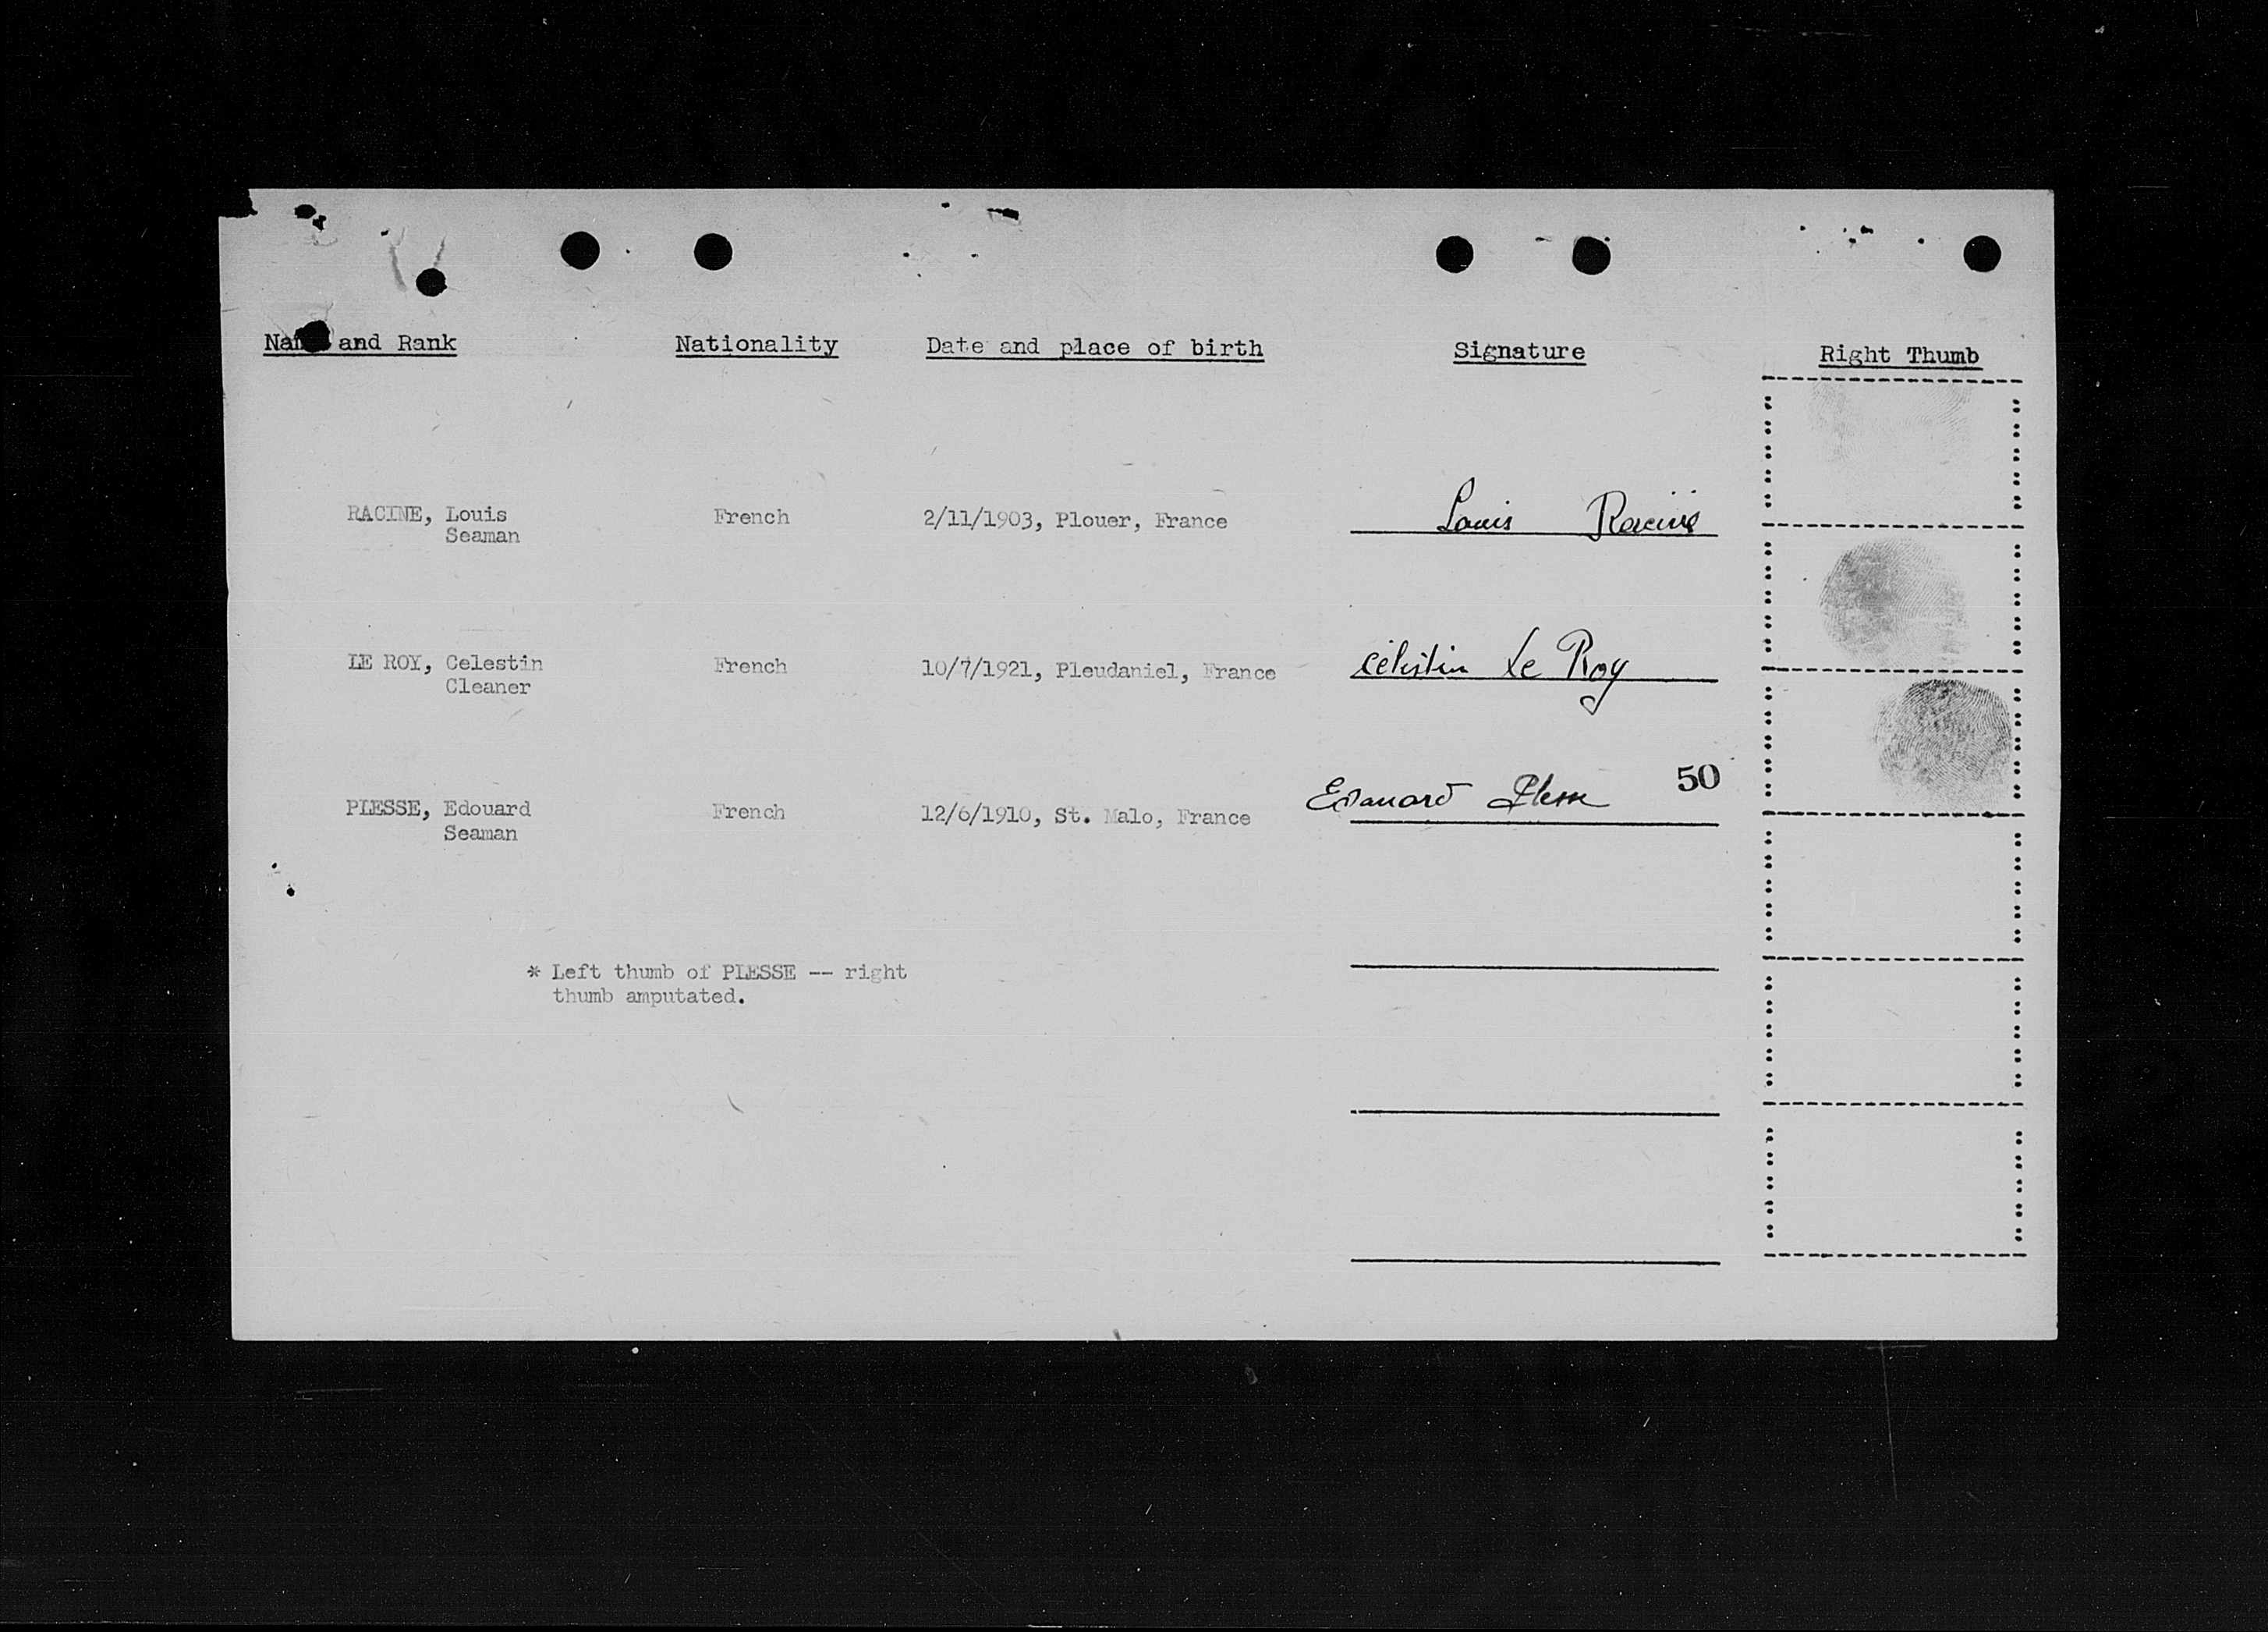 Name and Rank Nationality Date and place of birth Signature Right Thumb
RACINE, Louis French 2/11/1903, Plouer, France Louis Racine
Seaman
LE ROY, Celestin French 10/7/1921, Pleudaniel, France célestin Le Roy
Cleaner
50
PLESSE, Edouard French 12/6/1910, St. Malo, France Edouard Plesse
Seaman
* Left thumb of PLESSE -- right
thumb amputated.